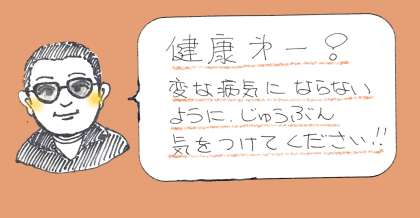 健康㐧一！
変な病気にならない
ように、じゅうぶん
気をつけてください!!